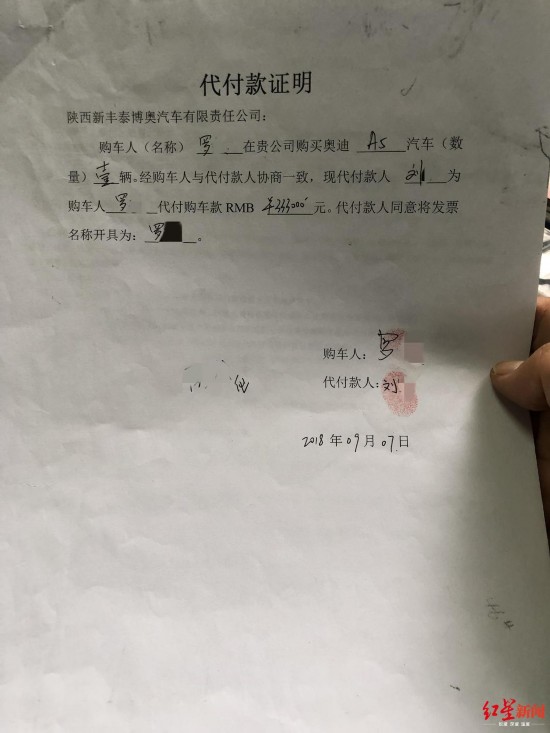 代付款证明
陕西新丰泰博奥汽车有限责任公司：
购车人（名称） 罗 在贵公司购买奥迪 A5 汽车（数
量）壹辆。经购车人与代付款人协商一致，现代付款人 刘 为
购车人 罗 代付购车款 RMB ￥333000 元。代付款人同意将发票
名称开具为：罗 。
购车人：罗
代付款人：刘
2018 年 09 月 07 日
红星新闻